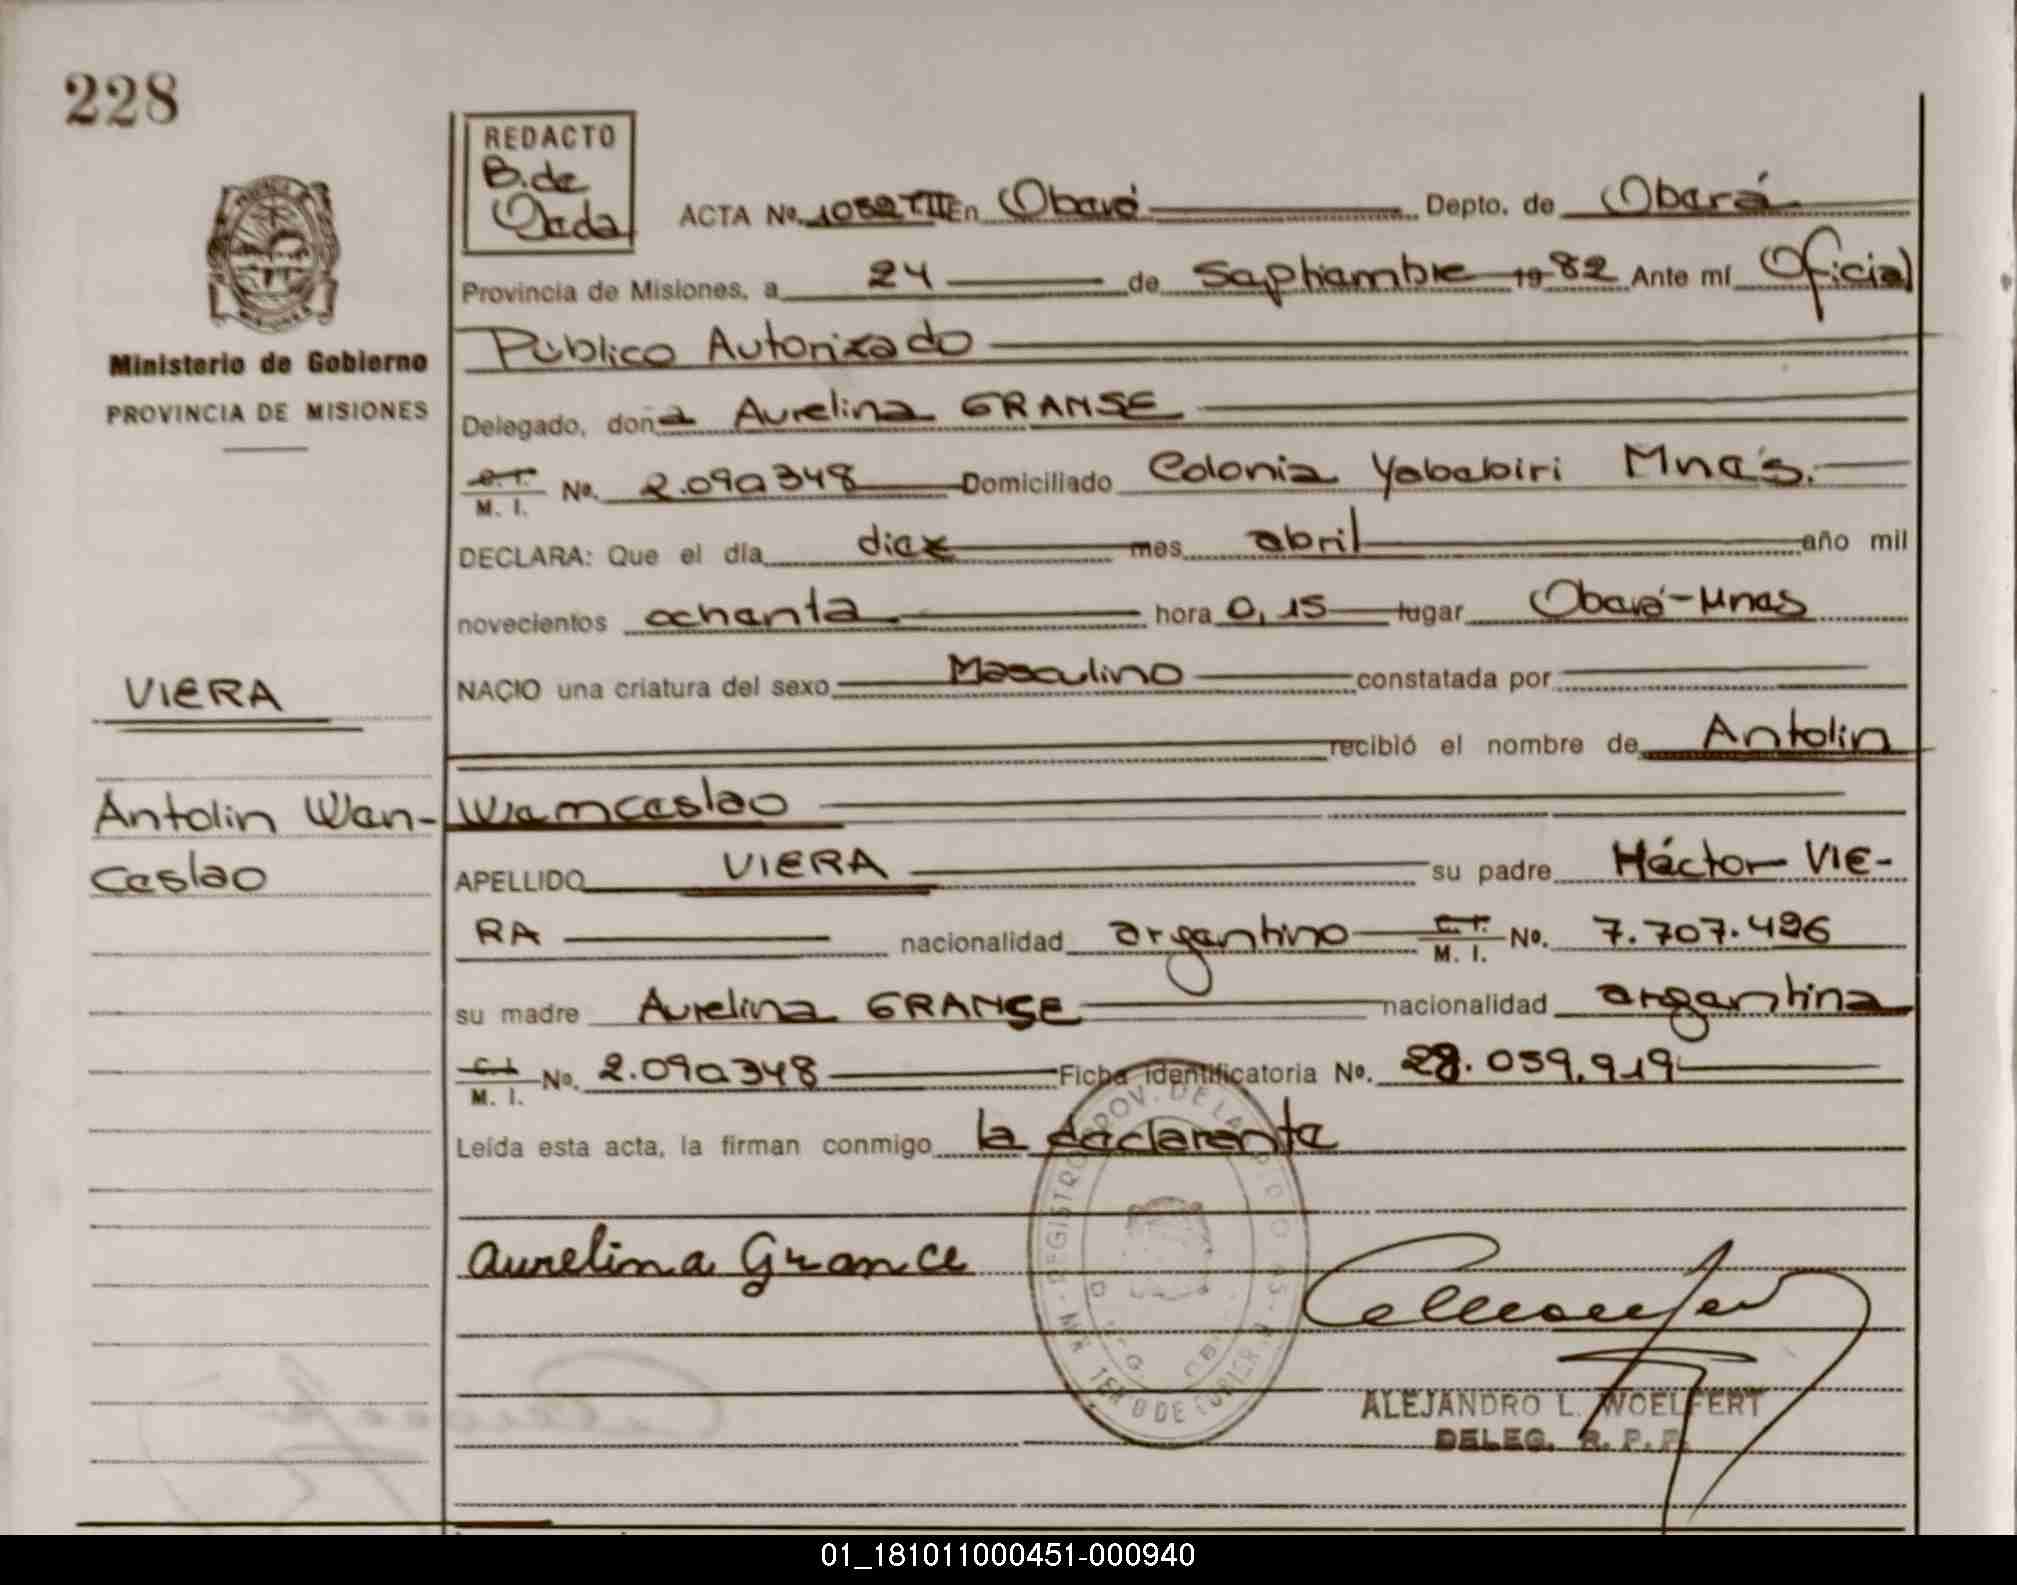 228
REDACTO
B. de
Ojeda
ACTA No. 1052 TIII En Oberá Depto. de Oberá
Provincia de Misiones, a 24 de Septiembre 1982 Ante mí Oficial
Público Autorizado
Ministerio de Gobierno
PROVINCIA DE MISIONES
Delegado, doña Aurelina GRANSE
C.I. M. I. No. 2.090348 Domiciliado Colonia Yabebiri Mnes.
DECLARA: Que el día diez mes abril año mil
novecientos ochenta hora 0,15 lugar Oberá-Mnes
NACIO una criatura del sexo Masculino constatada por
recibió el nombre de Antolin
Wenceslao
VIERA
Antolin Wen-
ceslao
APELLIDO VIERA su padre Héctor VIE-
RA nacionalidad argentino C.I. M. I. No. 7.707.426
su madre Aurelina GRANSE nacionalidad argentina
C.I. M. I. No. 2.090348 Ficha identificatoria No. 28.059.919
Leída esta acta, la firman conmigo la declarante
Aurelina Grance
ALEJANDRO L. WOELFERT
DELEG. R. P. P.
01_181011000451-000940